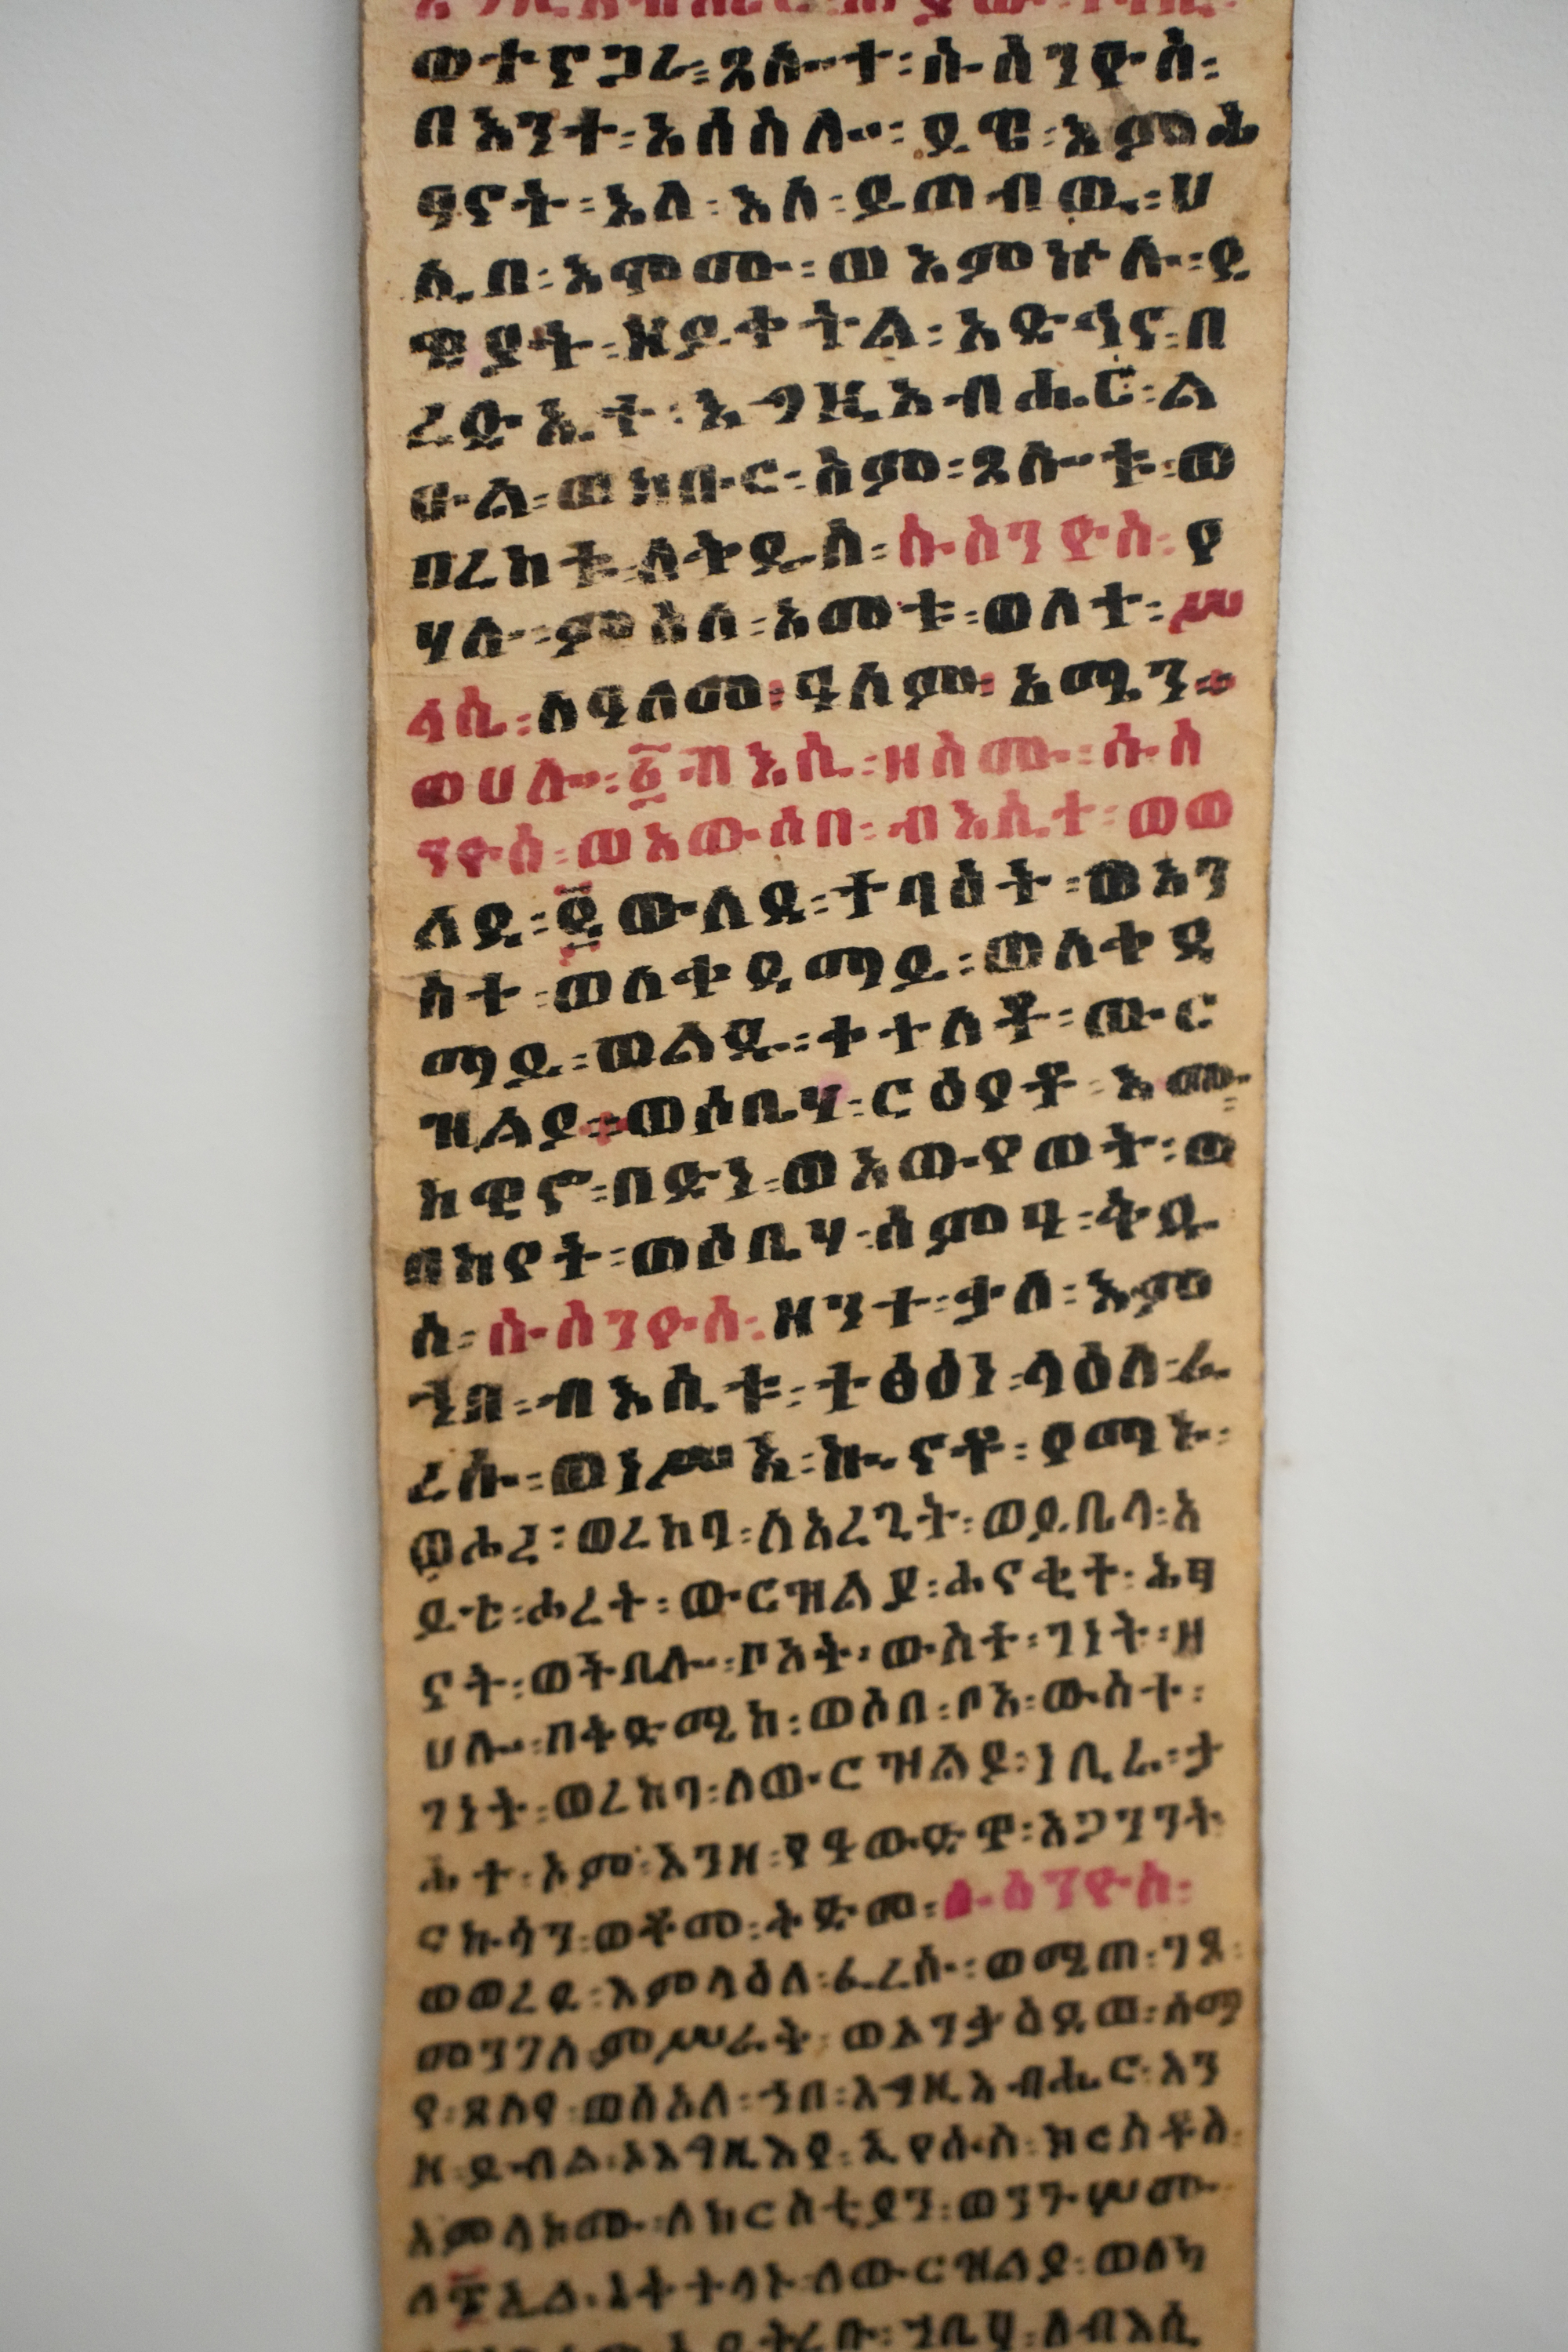 ወተናጋሪ፡ጸሎተ፡ሱስንዮስ፡
በእንተ፡አሰስሎ፡ደዌ፡እምሕ
ፃናት፡እለ፡እለ፡ይጠብዉ፡ሀ
ሊበ፡እሞሙ፡ወእምኵሉ፡ደ
ዌያት፡ዘይቀትል፡አድኅና፡በ
ረድኤተ፡እግዚአብሔር፡ል
ዑል፡ወክቡር፡ስም፡ጸሎቱ፡ወ
በረከቱ፡ለቅዱስ፡ሱስንዮስ፡የ
ሃሉ፡ምስለ፡አመቱ፡ወለተ፡ሥ
ላሴ፡ለዓለመ፡ዓለም፡አሜን፡
ወሀሎ፡፩ብእሲ፡ዘስሙ፡ሱስ
ንዮስ፡ወአውሰበ፡ብእሲተ፡ወወ
ለደ፡፩ውሉደ፡ተባዕት፡ወእን
ስተ፡ወለቀዳማይ፡ወለቀዳ
ማይ፡ወልዱ፡ቀተለቶ፡ውር
ዝልያ፡ወሶቤሃ፡ርዕየቶ፡እሙ፡
ከዊኖ፡በድነ፡ወአውየወት፡ወ
በከየት፡ወሶቤሃ፡ሰምዓ፡ቅዱ
ስ፡ሱስንዮስ፡ዘንተ፡ቃለ፡እም
ኀበ፡ብእሲቱ፡ተፅዕነ፡ላዕለ፡ፈ
ረሱ፡ወነሥአ፡ኩናቶ፡የማኑ፡
ወሖረ፡ወረከባ፡ለአረጊት፡ወይቤላ፡አ
ይቴ፡ሖረት፡ውርዝልያ፡ሐናቂተ፡ሕፃ
ናት፡ወትቤሎ፡ቦአት፡ውስተ፡ገነት፡ዘ
ሀሎ፡በቅድሜከ፡ወሶበ፡ቦአ፡ውስተ፡
ገነት፡ወረከባ፡ለውርዝልያ፡ነቢራ፡ታ
ሕተ፡ኦም፡እንዘ፡የዓውድዋ፡አጋንንት
ርኩሳን፡ወቆመ፡ቅድመ፡ሱስንዮስ፡
ወወረደ፡እምላዕለ፡ፈረሱ፡ወሜጠ፡ገጸ፡
መንገለ፡ምሥራቅ፡ወአንቃዕደወ፡ሰማ
የ፡ጸለየ፡ወሰአለ፡ኀበ፡እግዚአብሔር፡እን
ዘ፡ይብል፡ኦእግዚእየ፡ኢየሱስ፡ክርስቶስ፡
አምላኮሙ፡ለክርስቲያን፡ወንጉሦሙ፡